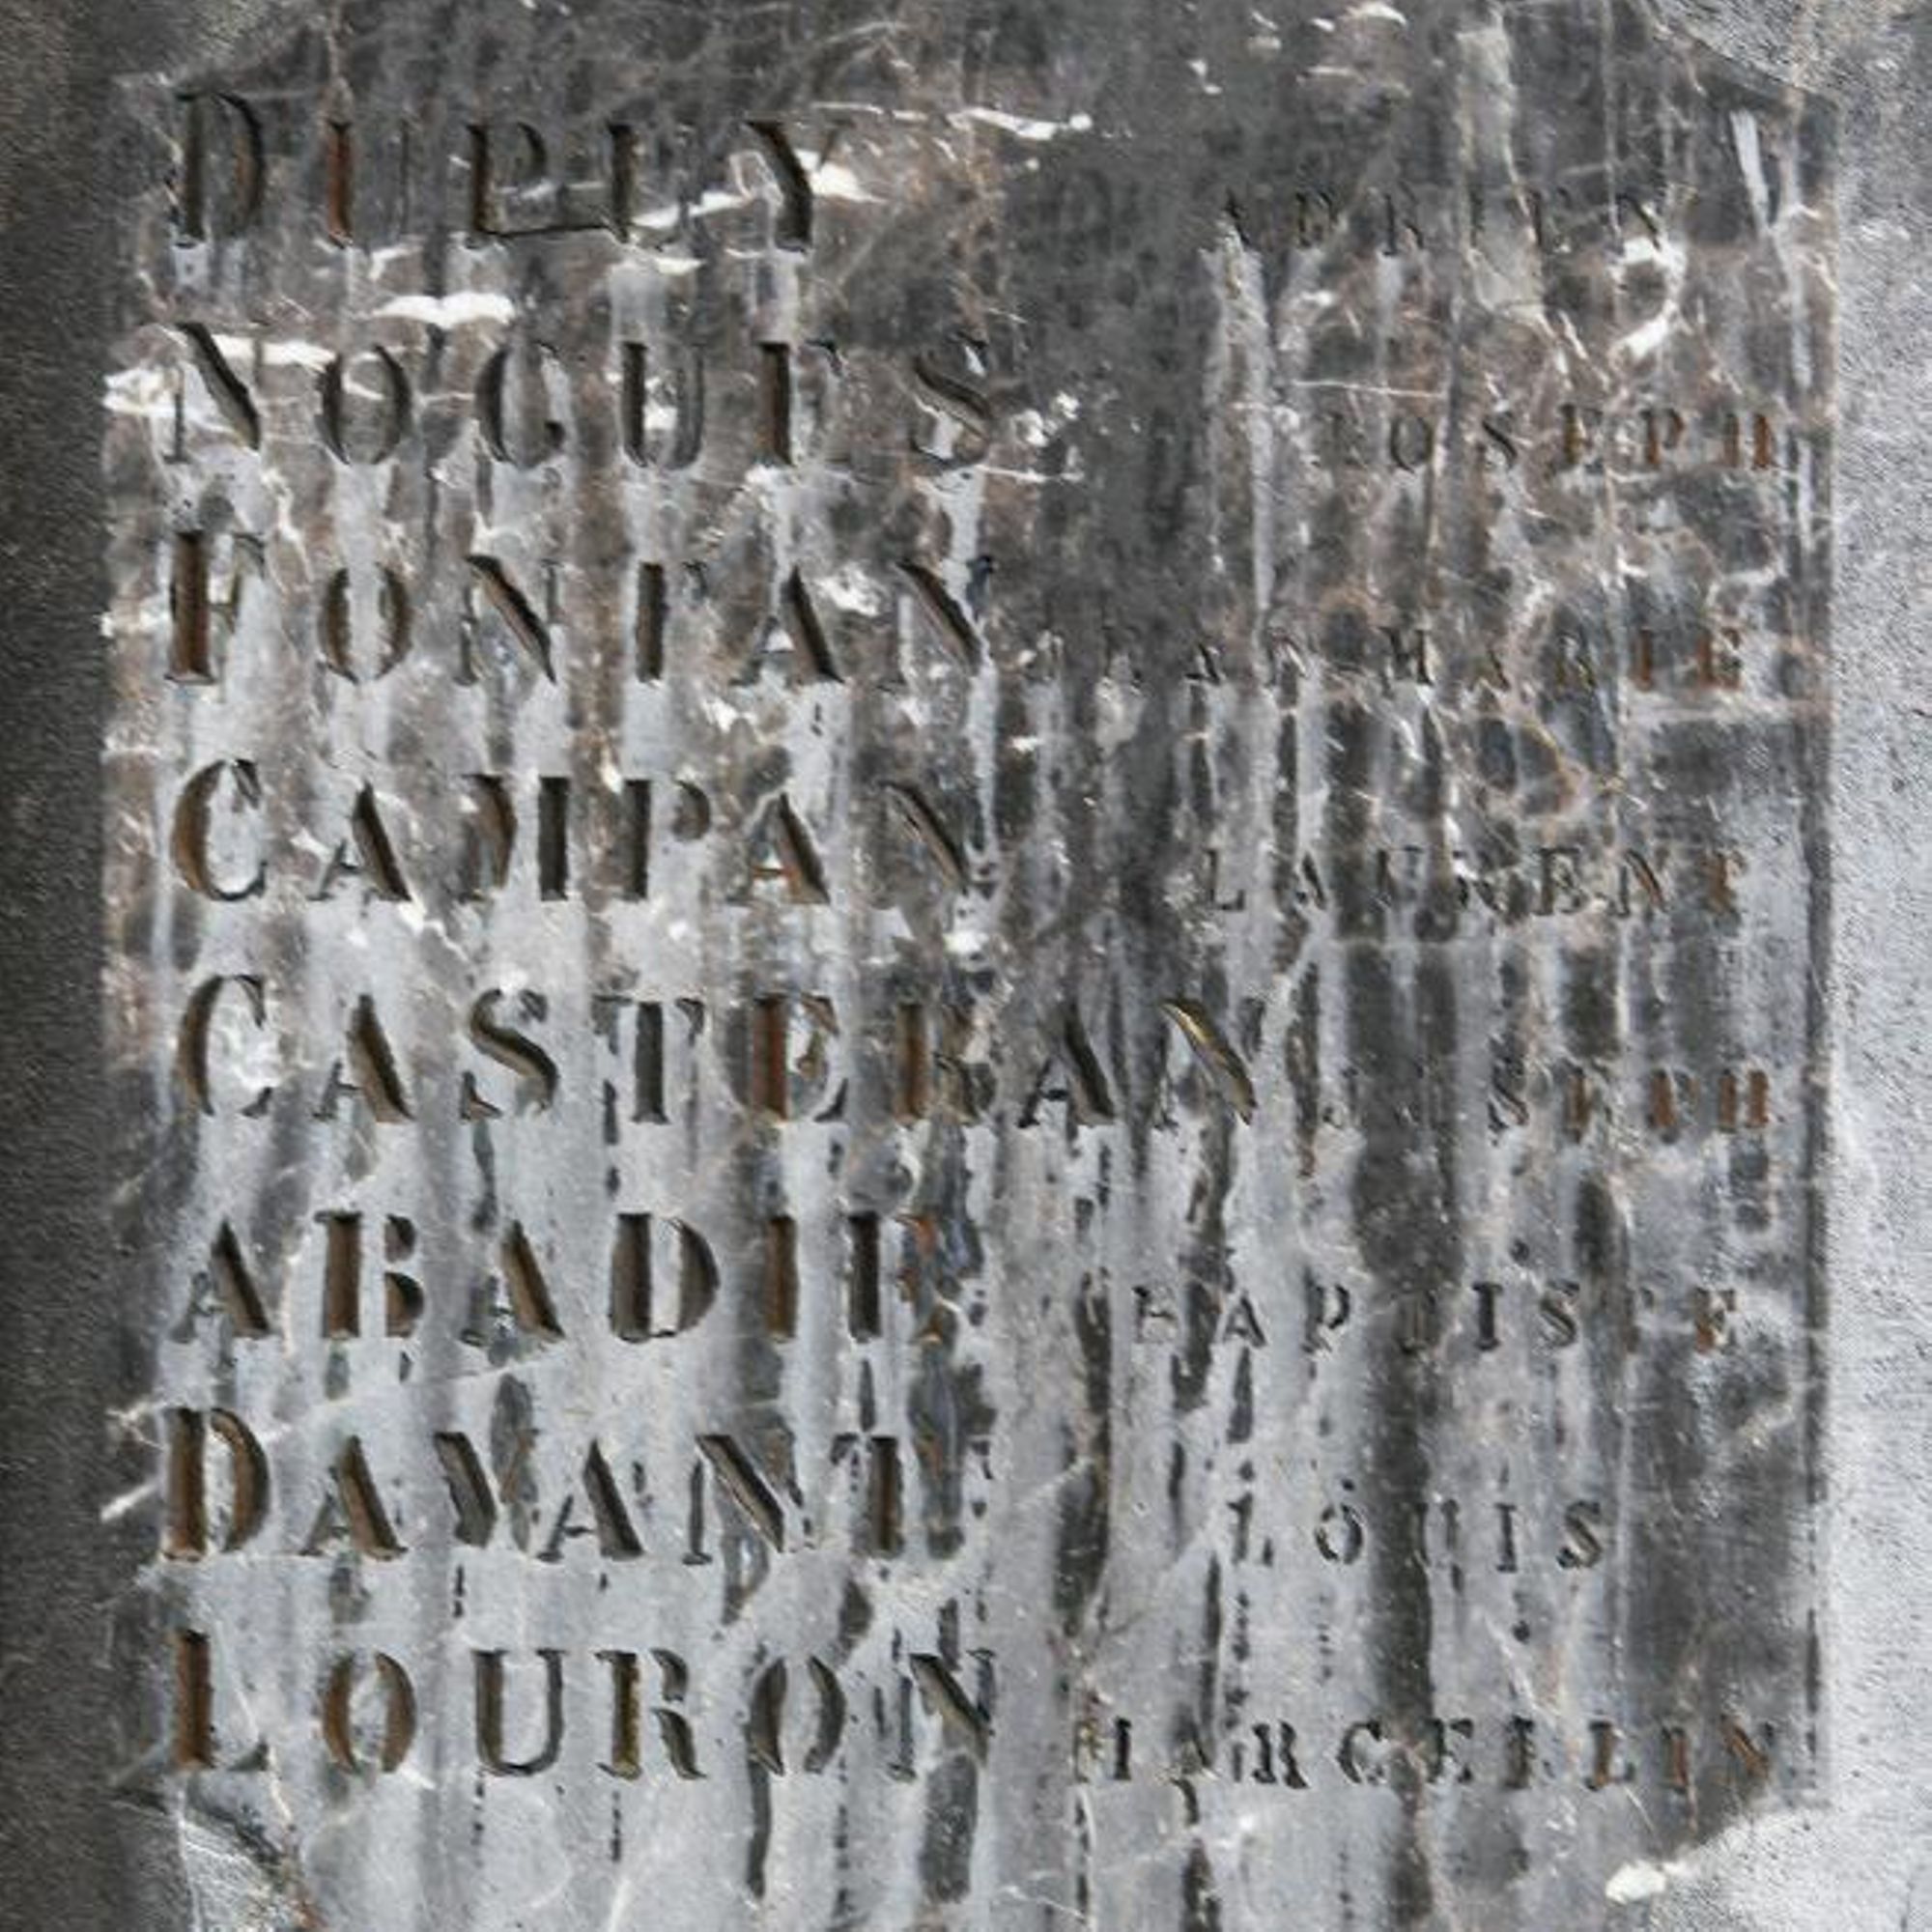 DUPUY ADRIEN
NOGUES JOSEPH
FONTAN JEAN MARIE
CAMPAN LAURENT
CASTERAN JOSEPH
ABADIE BAPTISTE
DAVANT LOUIS
LOURON MARCELLIN